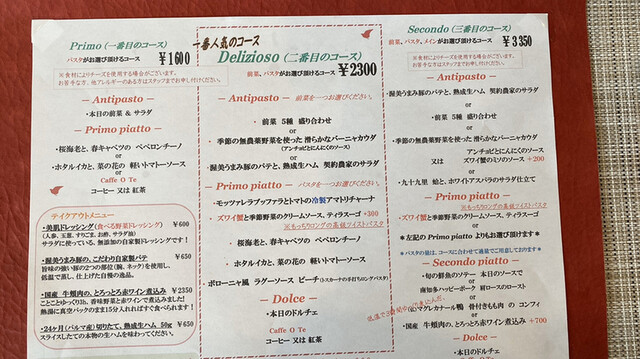 Primo (一番目のコース)
パスタがお選び頂けるコース ￥1600
※食材によりチーズを使用する場合がございます。
お苦手な方、他アレルギーのある方はスタッフまでお申し付けください。
― Antipasto ―
・本日の前菜 & サラダ
― Primo piatto ―
・桜海老と、春キャベツの ペペロンチーノ
or
・ホタルイカと、菜の花の 軽いトマトソース
Caffe O Te
コーヒー 又は 紅茶
テイクアウトメニュー
・美肌ドレッシング(食べる野菜ドレッシング) ￥600
(人参、玉葱、すりごま、お酢、サラダ油)
サラダに使っている、無添加の自家製ドレッシングです！
・渥美うまみ豚の、こだわり自家製パテ ￥650
旨味の強い豚の2つの部位(胸、ネック)を使用し、
低温で蒸し、仕上げた自慢の逸品。
・国産 牛頬肉の、とろっとろ赤ワイン煮込み ￥2350
ことことゆっくり3h、香味野菜と赤ワインで煮込みました！
熱湯に真空パックのまま15分入れればすぐ食べれます！
・24ヶ月(パルマ産)切りたて、熟成生ハム 50g ￥650
スライスしたての本物の生ハムを味わってください。
一番人気のコース
Delizioso (二番目のコース)
前菜、パスタがお選び頂けるコース ￥2300
― Antipasto ― 前菜を一つお選びください。
・前菜 5種 盛り合わせ
or
・季節の無農薬野菜を使った 滑らかなバーニャカウダ
(アンチョビとにんにくのソース)
or
・渥美うまみ豚のパテと、熟成生ハム 契約農家のサラダ
― Primo piatto ― パスタを一つお選びください。
・モッツァレラブッファラとトマトの冷製アマトリチャーナ
or
・ズワイ蟹と季節野菜のクリームソース、ティラスーゴ +300
※もっちりロングの高級ツイストパスタ
or
・桜海老と、春キャベツの ペペロンチーノ
or
・ホタルイカと、菜の花の 軽いトマトソース
or
・ボローニャ風 ラグーソース ピーチ(トスカーナの手打ちもロングパスタ)
― Dolce ―
・本日のドルチェ
Caffe O Te
コーヒー 又は 紅茶
Secondo (三番目のコース)
前菜、パスタ、メインがお選び頂けるコース ￥3350
※食材によりチーズを使用する場合がございます。
お苦手な方、他アレルギーのある方はスタッフまでお申し付けください。
― Antipasto ―
・渥美うまみ豚のパテと、熟成生ハム 契約農家のサラダ
or
・前菜 5種 盛り合わせ
or
・季節の無農薬野菜を使った 滑らかなバーニャカウダ
アンチョビとにんにくのソース
又は ズワイ蟹のミソのソース +200
or
・九十九里 蛤と、ホワイトアスパラのサラダ仕立て
― Primo piatto ―
※もっちりロングの高級ツイストパスタ
・ズワイ蟹と季節野菜のクリームソース、ティラスーゴ
or
★左記の Primo piatto よりもお選び頂けます★
*パスタの量は、コースに合わせて適量でご用意しております*
― Secondo piatto ―
・旬の鮮魚のソテー 本日のソースで
or
・南知多ハッピーポーク 肩ロースのロースト
or
・(仏)マグレカナール鴨 骨付きもも肉 の コンフィ
or
・国産 牛頬肉の、とろっとろ赤ワイン煮込み +700
低温で3時間ゆっくり煮込んだ。
― Dolce ―
・本日のドルチェ
Caffe O Te